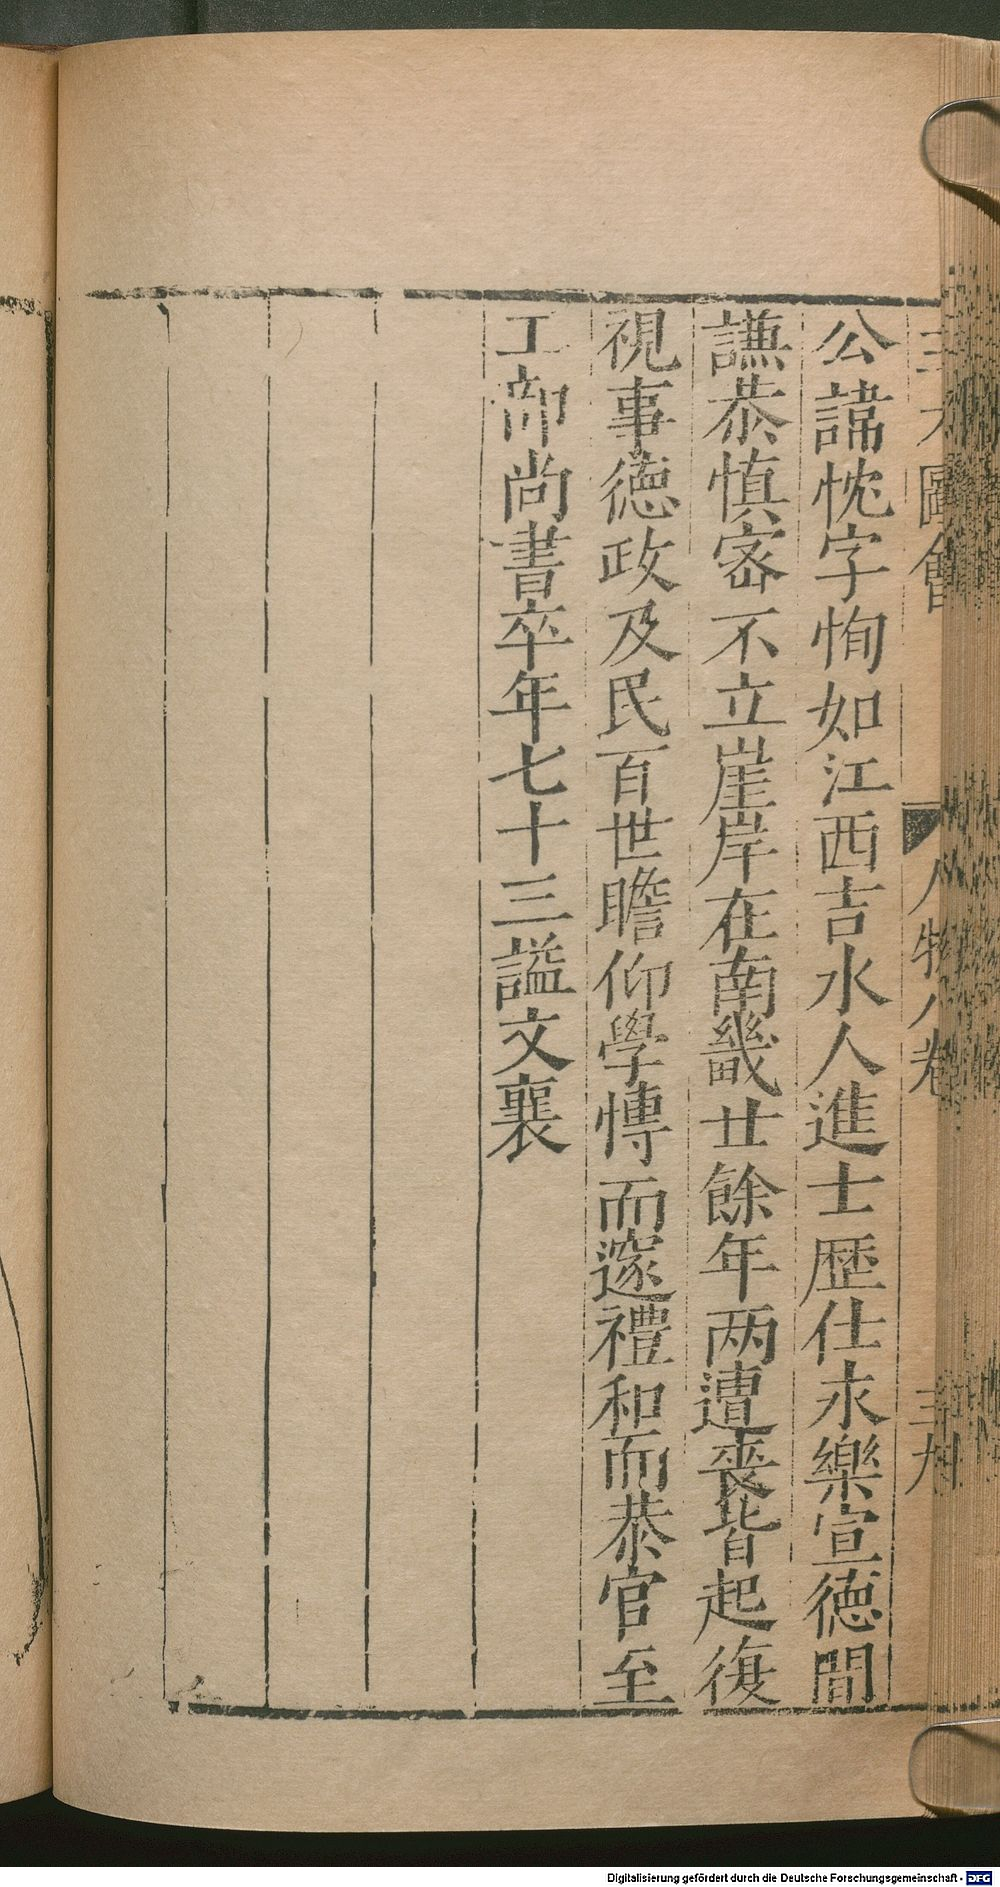 三才圖會 人物八卷 三十九
公諱忱字恂如江西吉水人進士歷仕永樂宣德間
謙恭慎密不立崖岸在南畿廿餘年两遭喪皆起復
視事德政及民百世瞻仰學慱而邃禮和而恭官至
工部尚書卒年七十三謚文襄
Digitalisierung gefördert durch die Deutsche Forschungsgemeinschaft - DFG